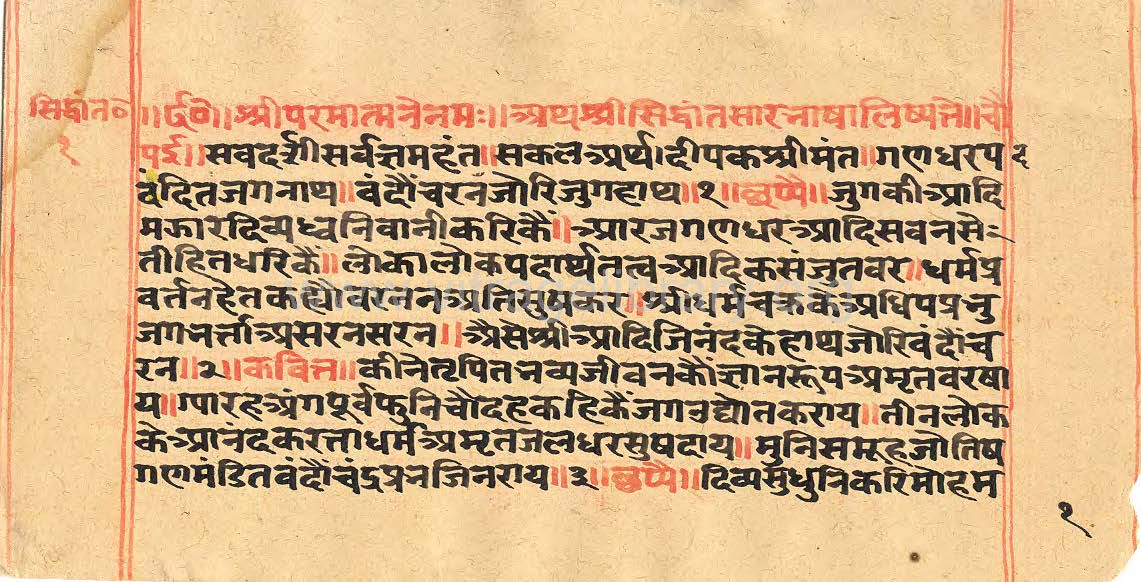 सिद्धांत०
१
॥र्द०॥श्रीपरमात्मनेनमः॥अथश्रीसिद्धांतसारभाषालिष्यते॥चौ
पई॥सवदर्शीसर्वज्ञमहंत॥सकलअर्थदीपकश्रीमंत॥गणधरपद
वंदितजगनाथ॥वंदौंचरनजोरिजुगहाथ॥१॥छप्पै॥जुगकीआदि
मझारदिव्यध्वनिवानीकरिकैं॥आरजगणधरआदिसवनसैः
तीहितधरिकैं॥लोकालोकपदार्थतत्वआदिकसंजुतवर॥धर्मप्र
वर्तनहेतकह्यौवरननअतिसुषकर॥श्रीधर्मचक्रकेअधिपप्रभु
जगभर्त्ताअसरनसरन॥अैसेश्रीआदिजिनंदकेहाथजोरिवंदौंच
रन॥२॥कवित्त॥कीनेतृपितभव्यजीवनकौंज्ञानरूपअमृतवरषा
य॥ग्यारहअंगपूर्वफुनिचौदहकहिकैंजगउद्योतकराय॥तीनलोक
केआनंदकरत्ताधर्मअमृतजलधरसुषदाय॥मुनिसमूहजोतिष
गणमंडितवंदौचंद्रप्रभजिनराय॥३॥छप्पै॥दिव्यसुधुनिकरिमोहम
१